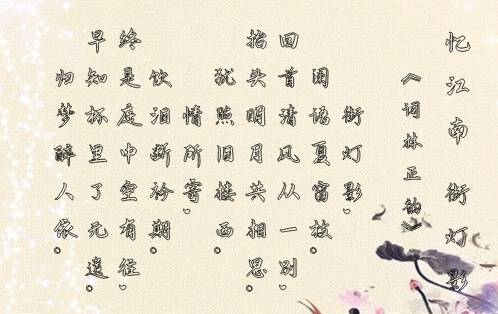 忆江南 街灯影
《词林正韵》
街灯影,
阑语夏窗枝。
回首清风从一别,
抬头明月共相思。
犹照旧楼西。
情所寄,
饮泪断衿期。
终是庭中空有,
早知杯里了无遗。
归梦醉人依。